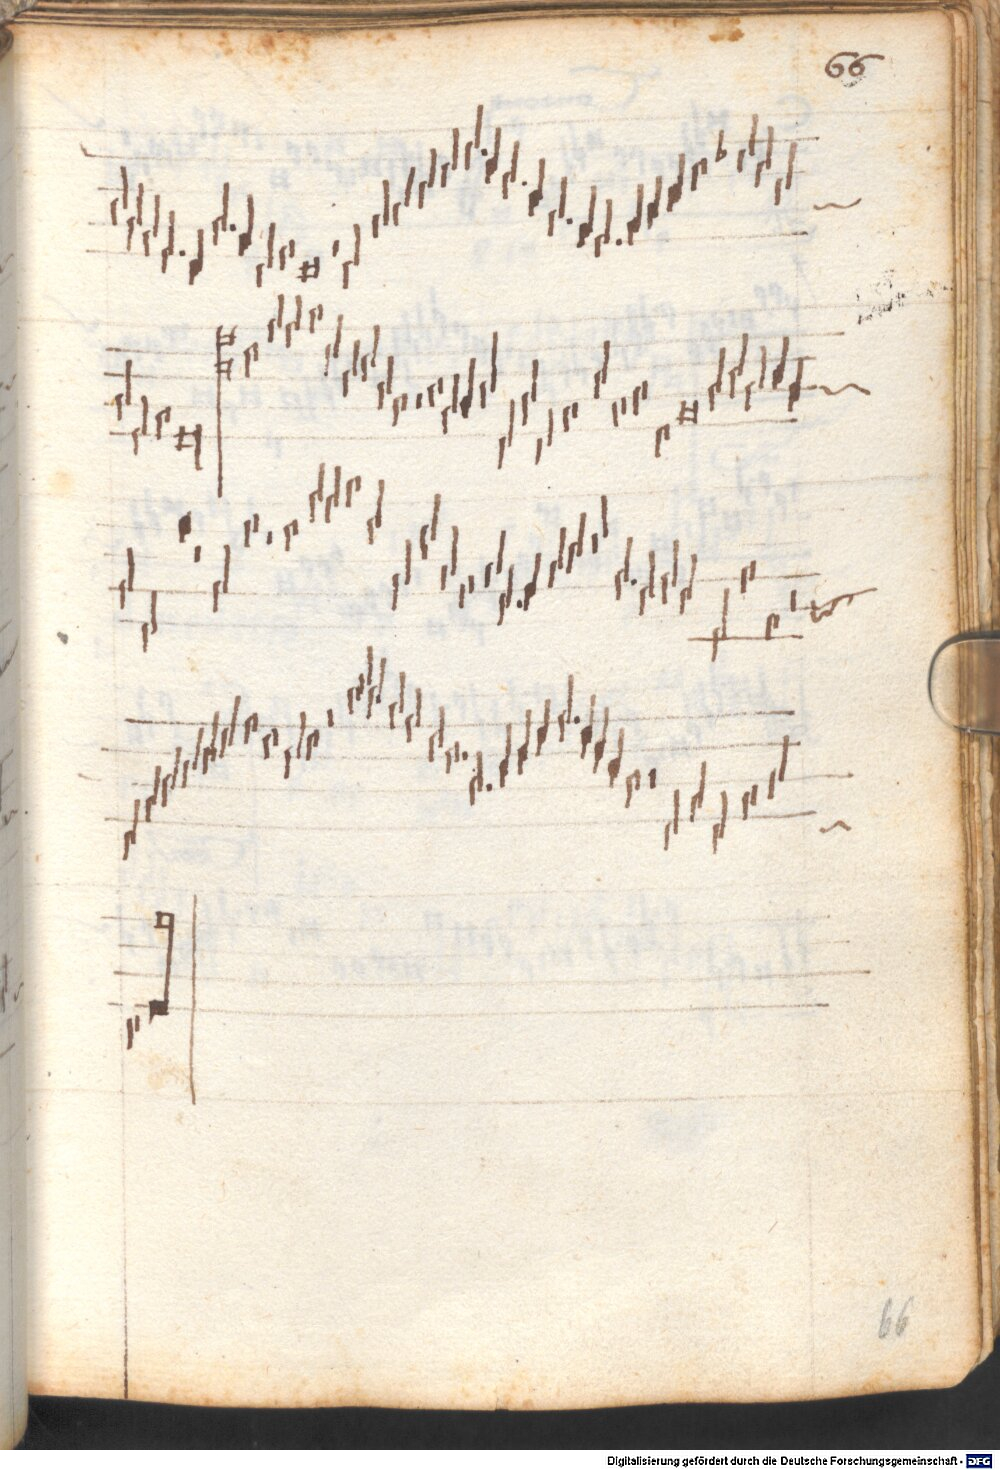 66
66
Digitalisierung gefördert durch die Deutsche Forschungsgemeinschaft - DFG